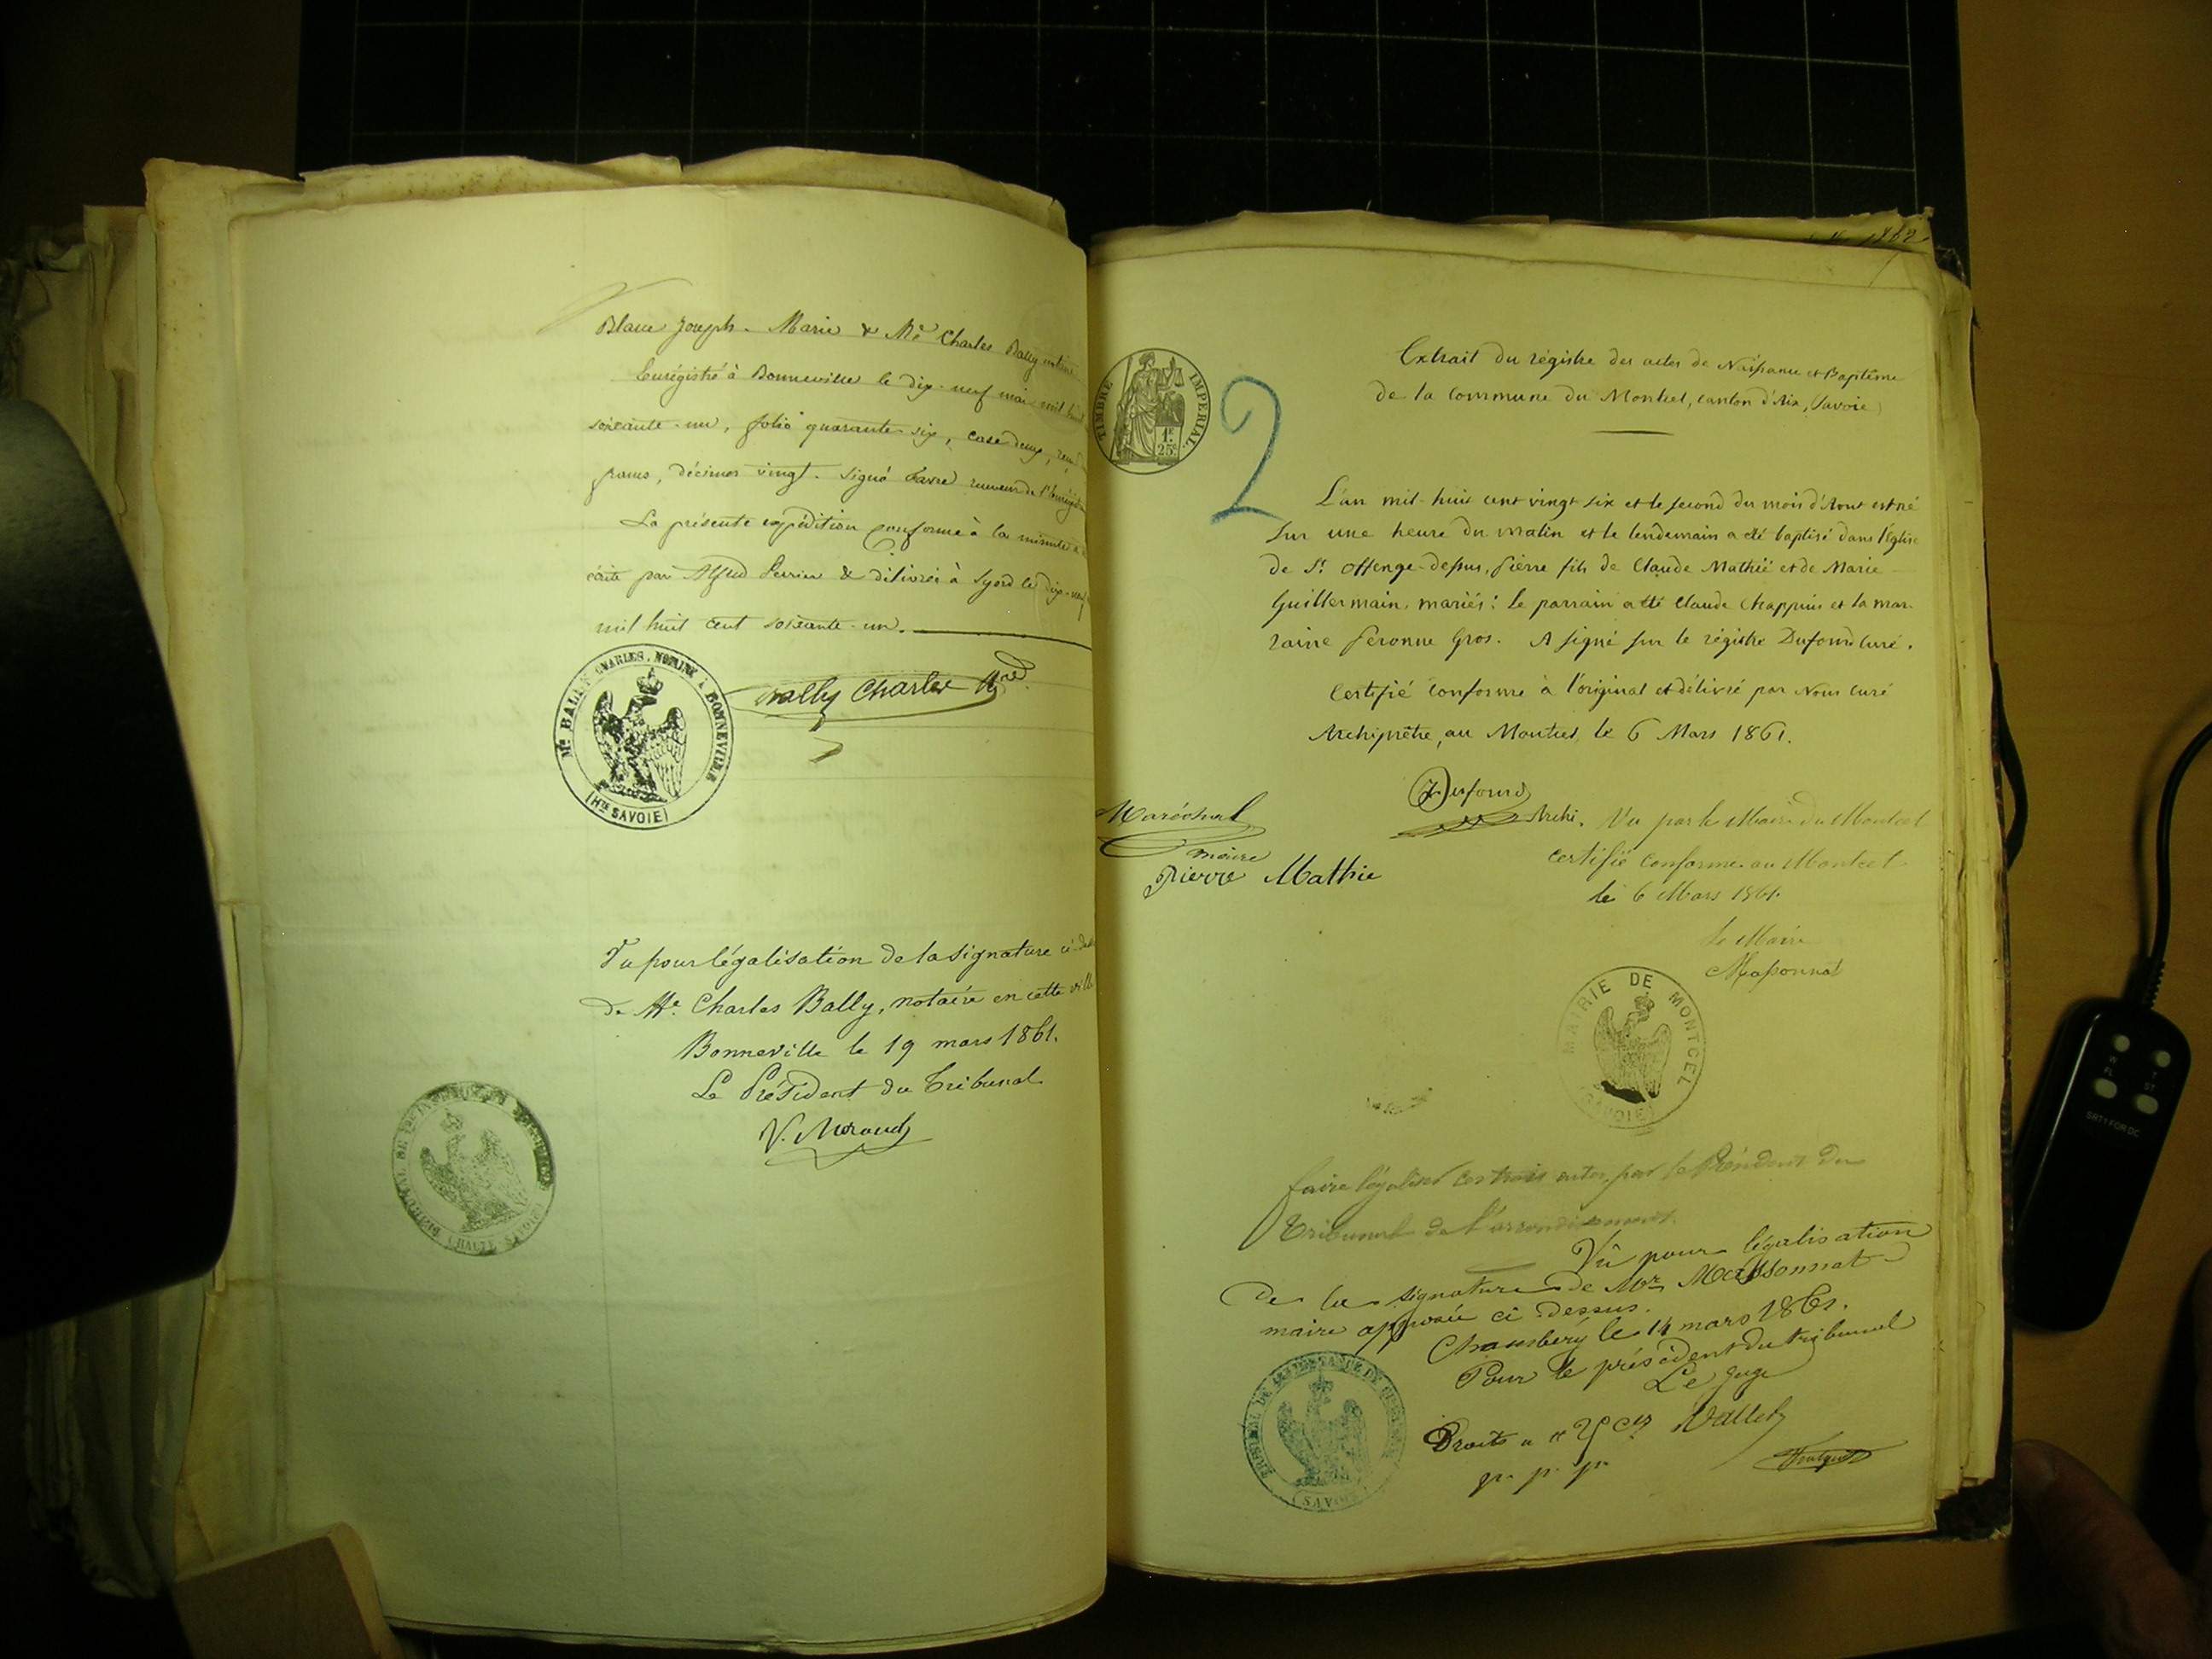 Blanc Joseph-Marie & Me Charles Bally notaire
Enrégistré à Bonneville le dix-neuf mars mil huit
soixante-un, folio quarante-six, case deux, reçu
francs, décimes vingt. signé Favre receveur de l'Enrégist
La présente expédition conforme à la minute a
écrite par Alfred Perrier & délivrée à le dix-neuf
mil huit cent soixante-un.
Me BALLY CHARLES, NOTAIRE À BONNEVILLE
(Hte SAVOIE)
Bally Charles Nre
Vu pour légalisation de la signature ci-des
de Me Charles Bally, notaire en cette ville
Bonneville le 19 mars 1861.
Le Président du Tribunal
V. Morand
TRIBUNAL DE 1re INSTANCE DE BONNEVILLE
(HAUTE-SAVOIE)
1862
TIMBRE IMPERIAL
1F
25c
2
Extrait du régistre des actes de Naissance et Baptême
de la Commune du Montcel, canton d'Aix, (Savoie)
L'an mil-huit cent vingt six et le second du mois d'Aout est né
sur une heure du matin et le lendemain a été baptisé dans l'Eglise
de St Offenge-dessus, Pierre fils de Claude Mathié et de Marie
Guillermain, mariés: le parrain a été Claude Chappuis et la mar-
raine Peronne Gros. A signé sur le régistre Dufourd curé.
Certifié conforme à l'original et délivré par Nous curé
Archiprêtre, au Montcel, le 6 Mars 1861.
Dufourd
Archi.
Maréchal
maire
Pierre Mathie
Vu par le Maire du Montcel
certifié conforme au Montcel
le 6 Mars 1861.
Le Maire
Massonnat
MAIRIE DE MONTCEL
(SAVOIE)
faire légaliser ces trois actes par le Président du
Tribunal de l'arrondissement.
Vû pour légalisation
de la signature de Mr Massonnat
maire apposée ci-dessus.
Chambéry le 14 mars 1861.
Pour le président du tribunal
Le Juge
Vallet
Droits
p. p. p.
TRIBUNAL DE 1re INSTANCE DE CHAMBERY
(SAVOIE)
SRTY FOR DC